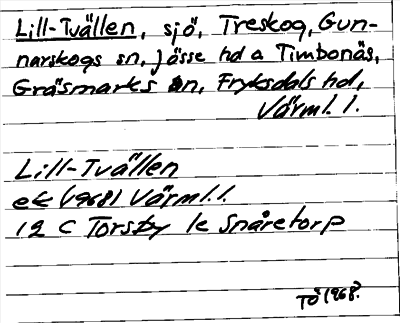 Lill-Tvällen, sjö, Treskog, Gun-
narskogs sn, Jösse hd o Timbonäs,
Gräsmarks sn, Fryksdals hd,
Värml. l.
Lill-Tvällen
ek (1968) Värml. l.
12 C Torsby 1c Snåretorp
TÖ 1968.